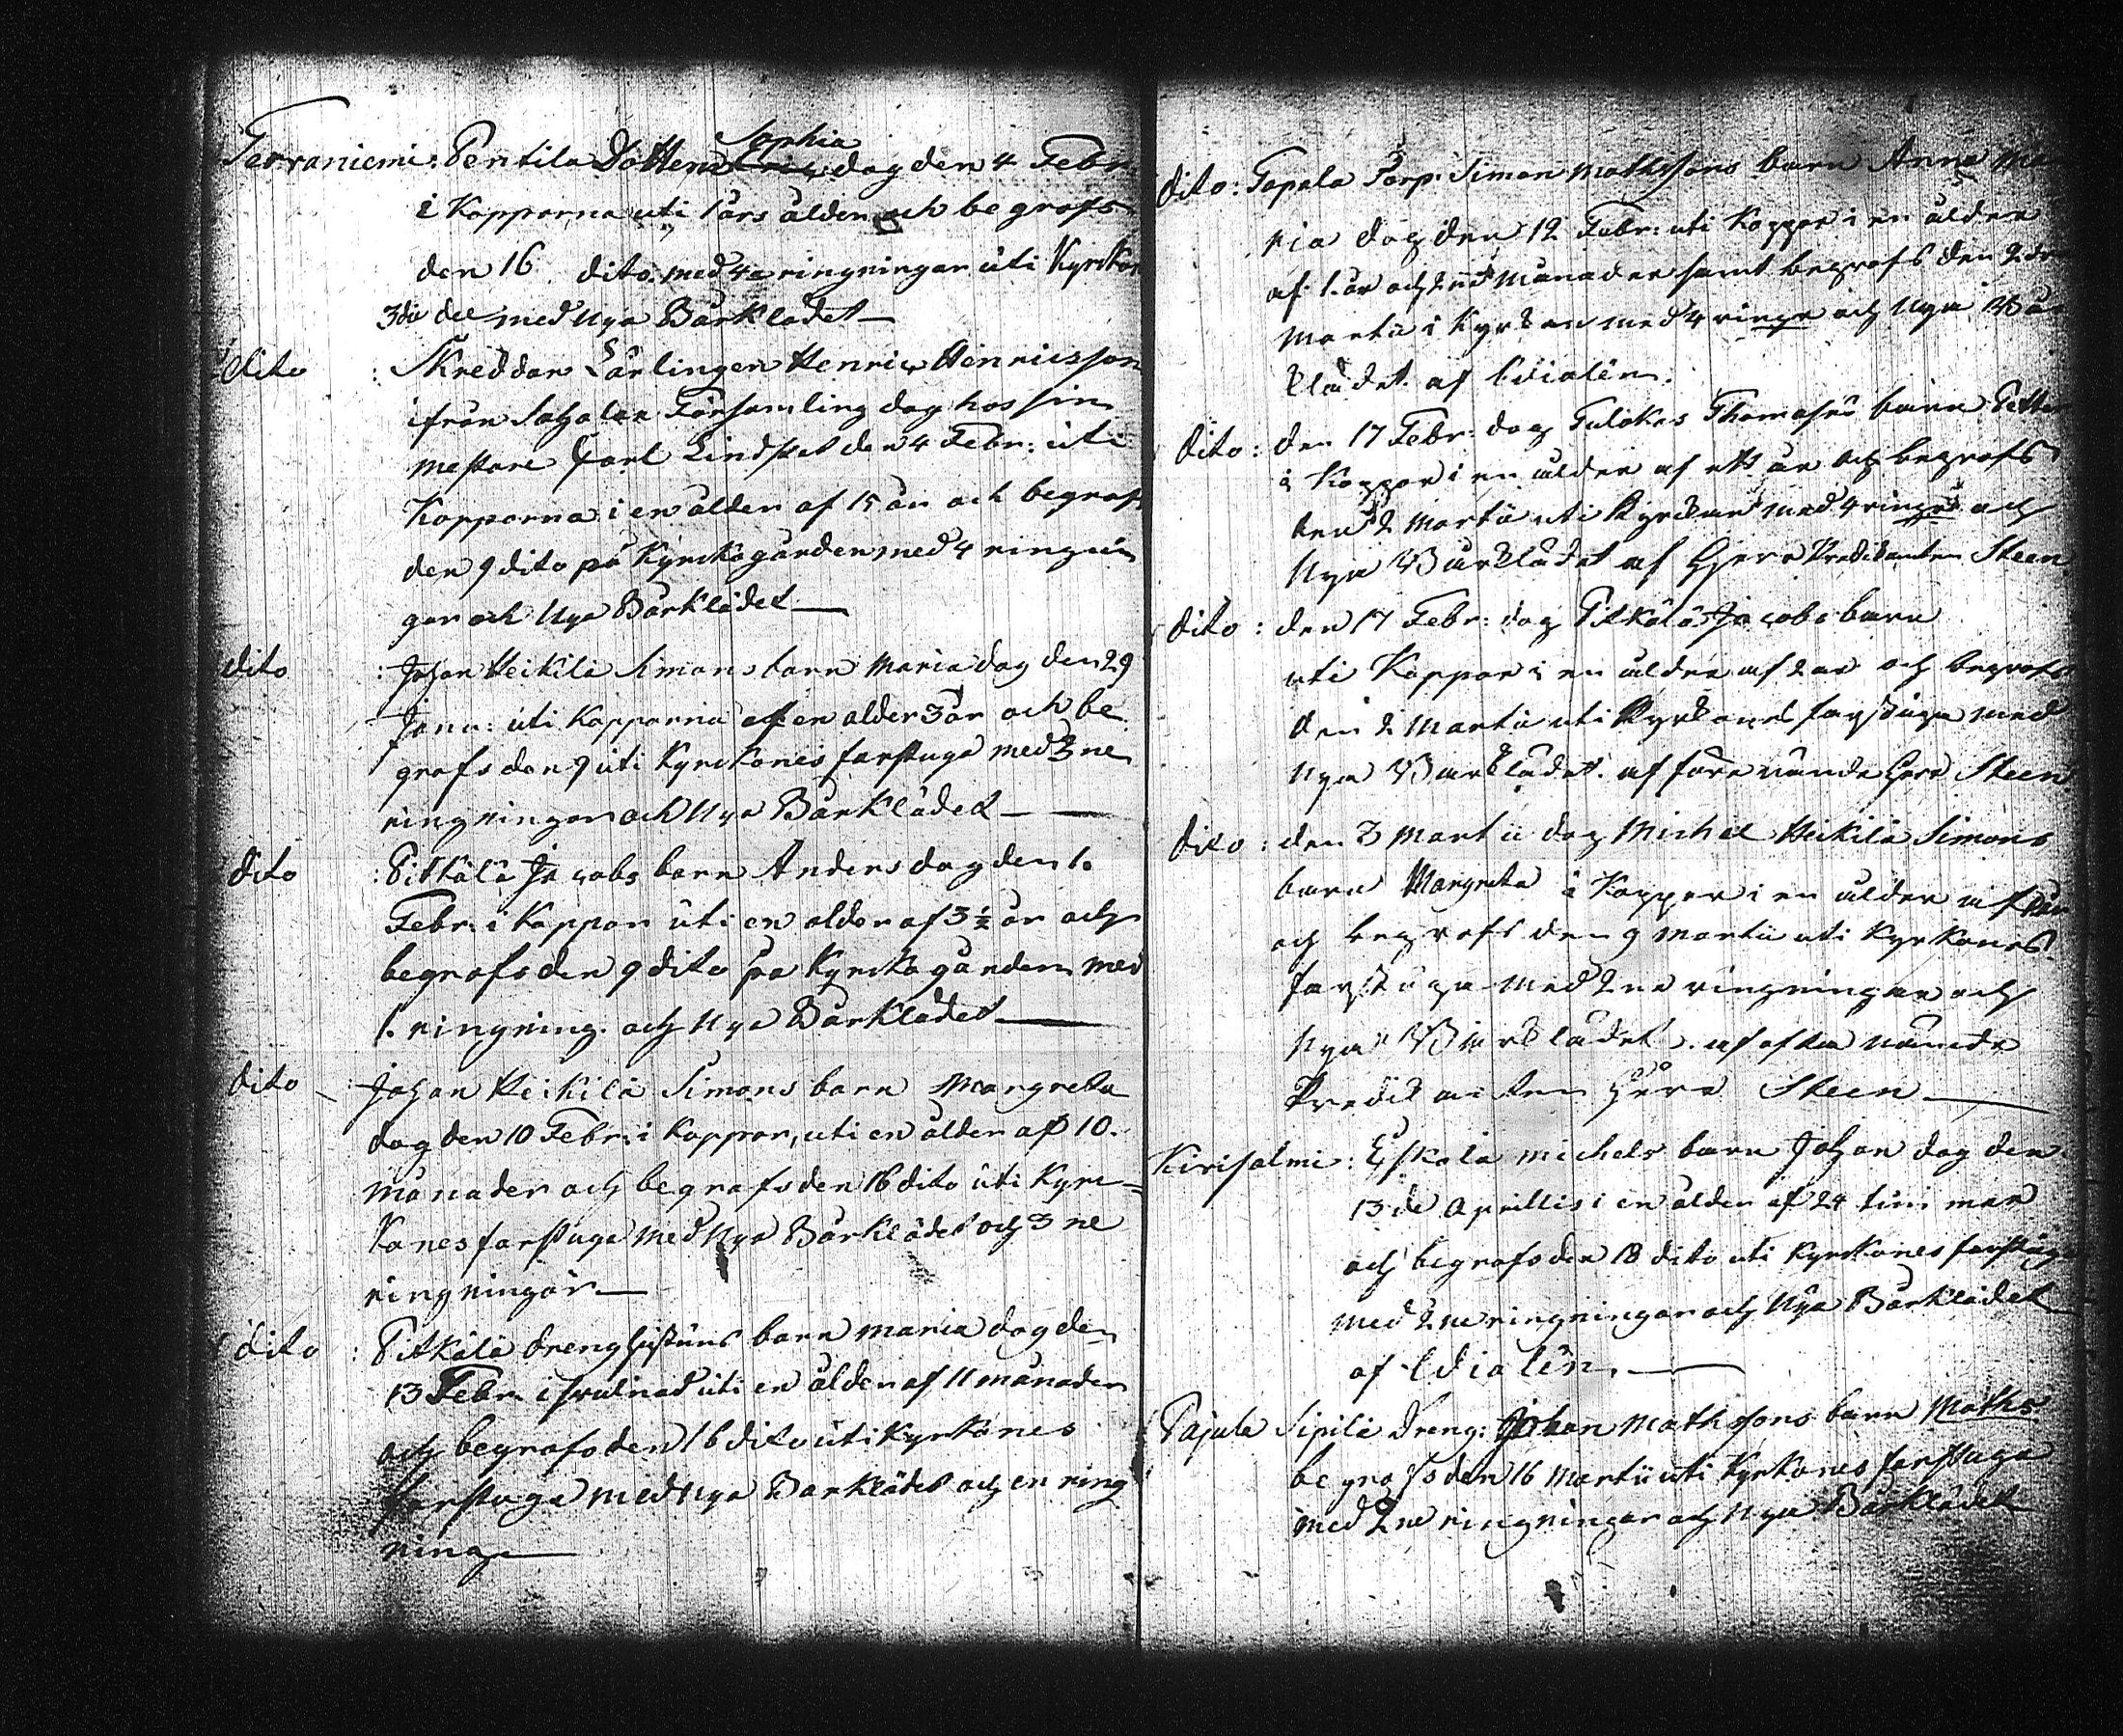 Sophia
Terraniemi: Pentila Dottern dog den 4 Febr.
i Kopporna uti 1 års ålder och begrofs
den 16 dito med 4a ringningar uti Kyrkon
3die del med Nya Bårklädet
dito : Skreddar Lärlingen Henric Henricsson
ifrån Sahalax Församling dog hos sin
mestare Carl Lindstet den 4 Febr: uti
Kopporna i en ålder af 15 år och begrofs
den 9 dito på Kyrckogården med 4 ringnin
gar och Nya Bårklädet
dito : Johan Heikilä Simons barn Maria dog den 29
Janu: uti Kopporna af en ålder 3 år och be
grofs den 9 uti Kyrckones farstuga med 3 ne
ringningar och Nya Bårklädet
dito : Pitkälä Jacobs barn Anders dog den 1.
Febr: i Koppor uti en ålder af 3 ½ år och
begrofs den 9 dito på Kyrckogården med
1. ringning. och Nya Bårklädet
dito : Johan Heikilä Simons barn Margreta
dog den 10 Febr: i Koppor, uti en ålder af 10.
månader och begrofs den 16 dito uti Kyrc=
kones farstuga med Nya Bårklädet och 3 ne
ringningar
dito : Pitkälä dreng barn Maria dog den
13 Febr. i uti en ålder af 11 månader
och begrofs den 16 dito uti Kyrkones
farstuga med Nya Barklädet och en ring
ning
dito: Tapala Torp: Simon Mathssons barn Anna Ma
ria dog den 12 Febr: uti Koppor i en ålder
af 1. år och 2 månader samt begrofs den 2 dre
Martii i Kyrkan med 4 ringr och Nya Bår
klädet af Idialën.
dito: den 17 Febr. dog Tulokas Thomases barn Petter
i Koppor i en ålder af ett år och begrofs
den 2 Martii uti Kyrckan med 4 ringr och
Nya Bårklädet af Herr Predikanten Steen
dito: den 17 Febr: dog Pitkälä Jacobs barn
uti Koppor i en ålder af 2 år och begrofs
den 2 Martii uti Kyrkones farstuga med
Nya Barklädet. af förenämde Herr Steen
dito: den 3 Martii dog Michel Heikilä Simons
barn Margreta i Koppor i en ålder af år
och begrofs den 9 Martii uti Kyrkones
farstuga med 2 ne ringningar och
Nya Bårklädet. af ofta nämde
Predikanten Herr Steen
Kirisalmi: Eskola Michels barn Johan dog den
13 de Aprillis i en ålder af 24 timmar
och begrofs den 18 dito uti Kyrckones farstuga
med 2 ne ringningar och Nya Bårklädet
af Idialën.
Pajula Sipilä Dreng: Johan Mathssons barn Maths
begrofs den 16 Martii uti Kyrkones farstuga
med 2 ne ringningar och Nya Bårklädet